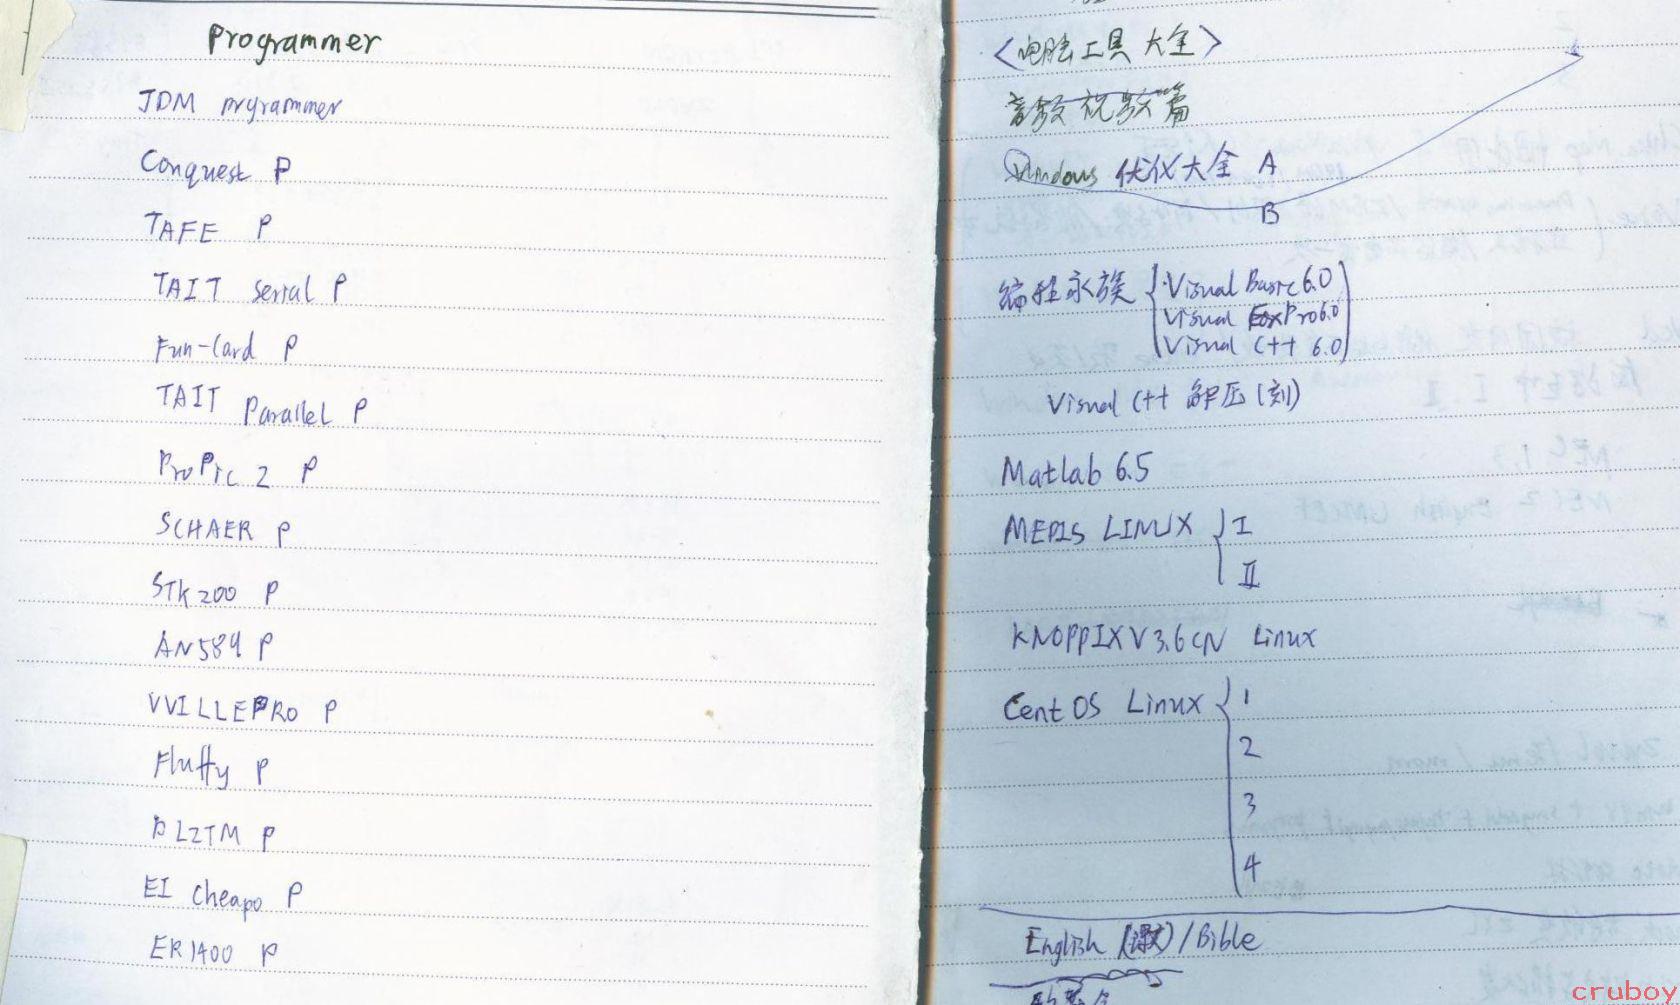 Programmer
JDM programmer
Conquest P
TAFE P
TAIT Serial P
Fun-Card P
TAIT Parallel P
ProPic 2 P
SCHAER P
STK200 P
AN589 P
VVILLEPRO P
Fluffy P
DL2TM P
EI Cheapo P
ER1400 P
<电脑工具大全>
音频视频篇
Windows 优化大全 A
B
编程永族 { Visual Basic 6.0
Visual FoxPro 6.0
Visual C++ 6.0 )
Visual C++ 解压(刻)
Matlab 6.5
MEPIS LINUX { I
II
KNOPPIX V3.6 CN Linux
CentOS Linux { 1
2
3
4
English () / Bible
cruboy